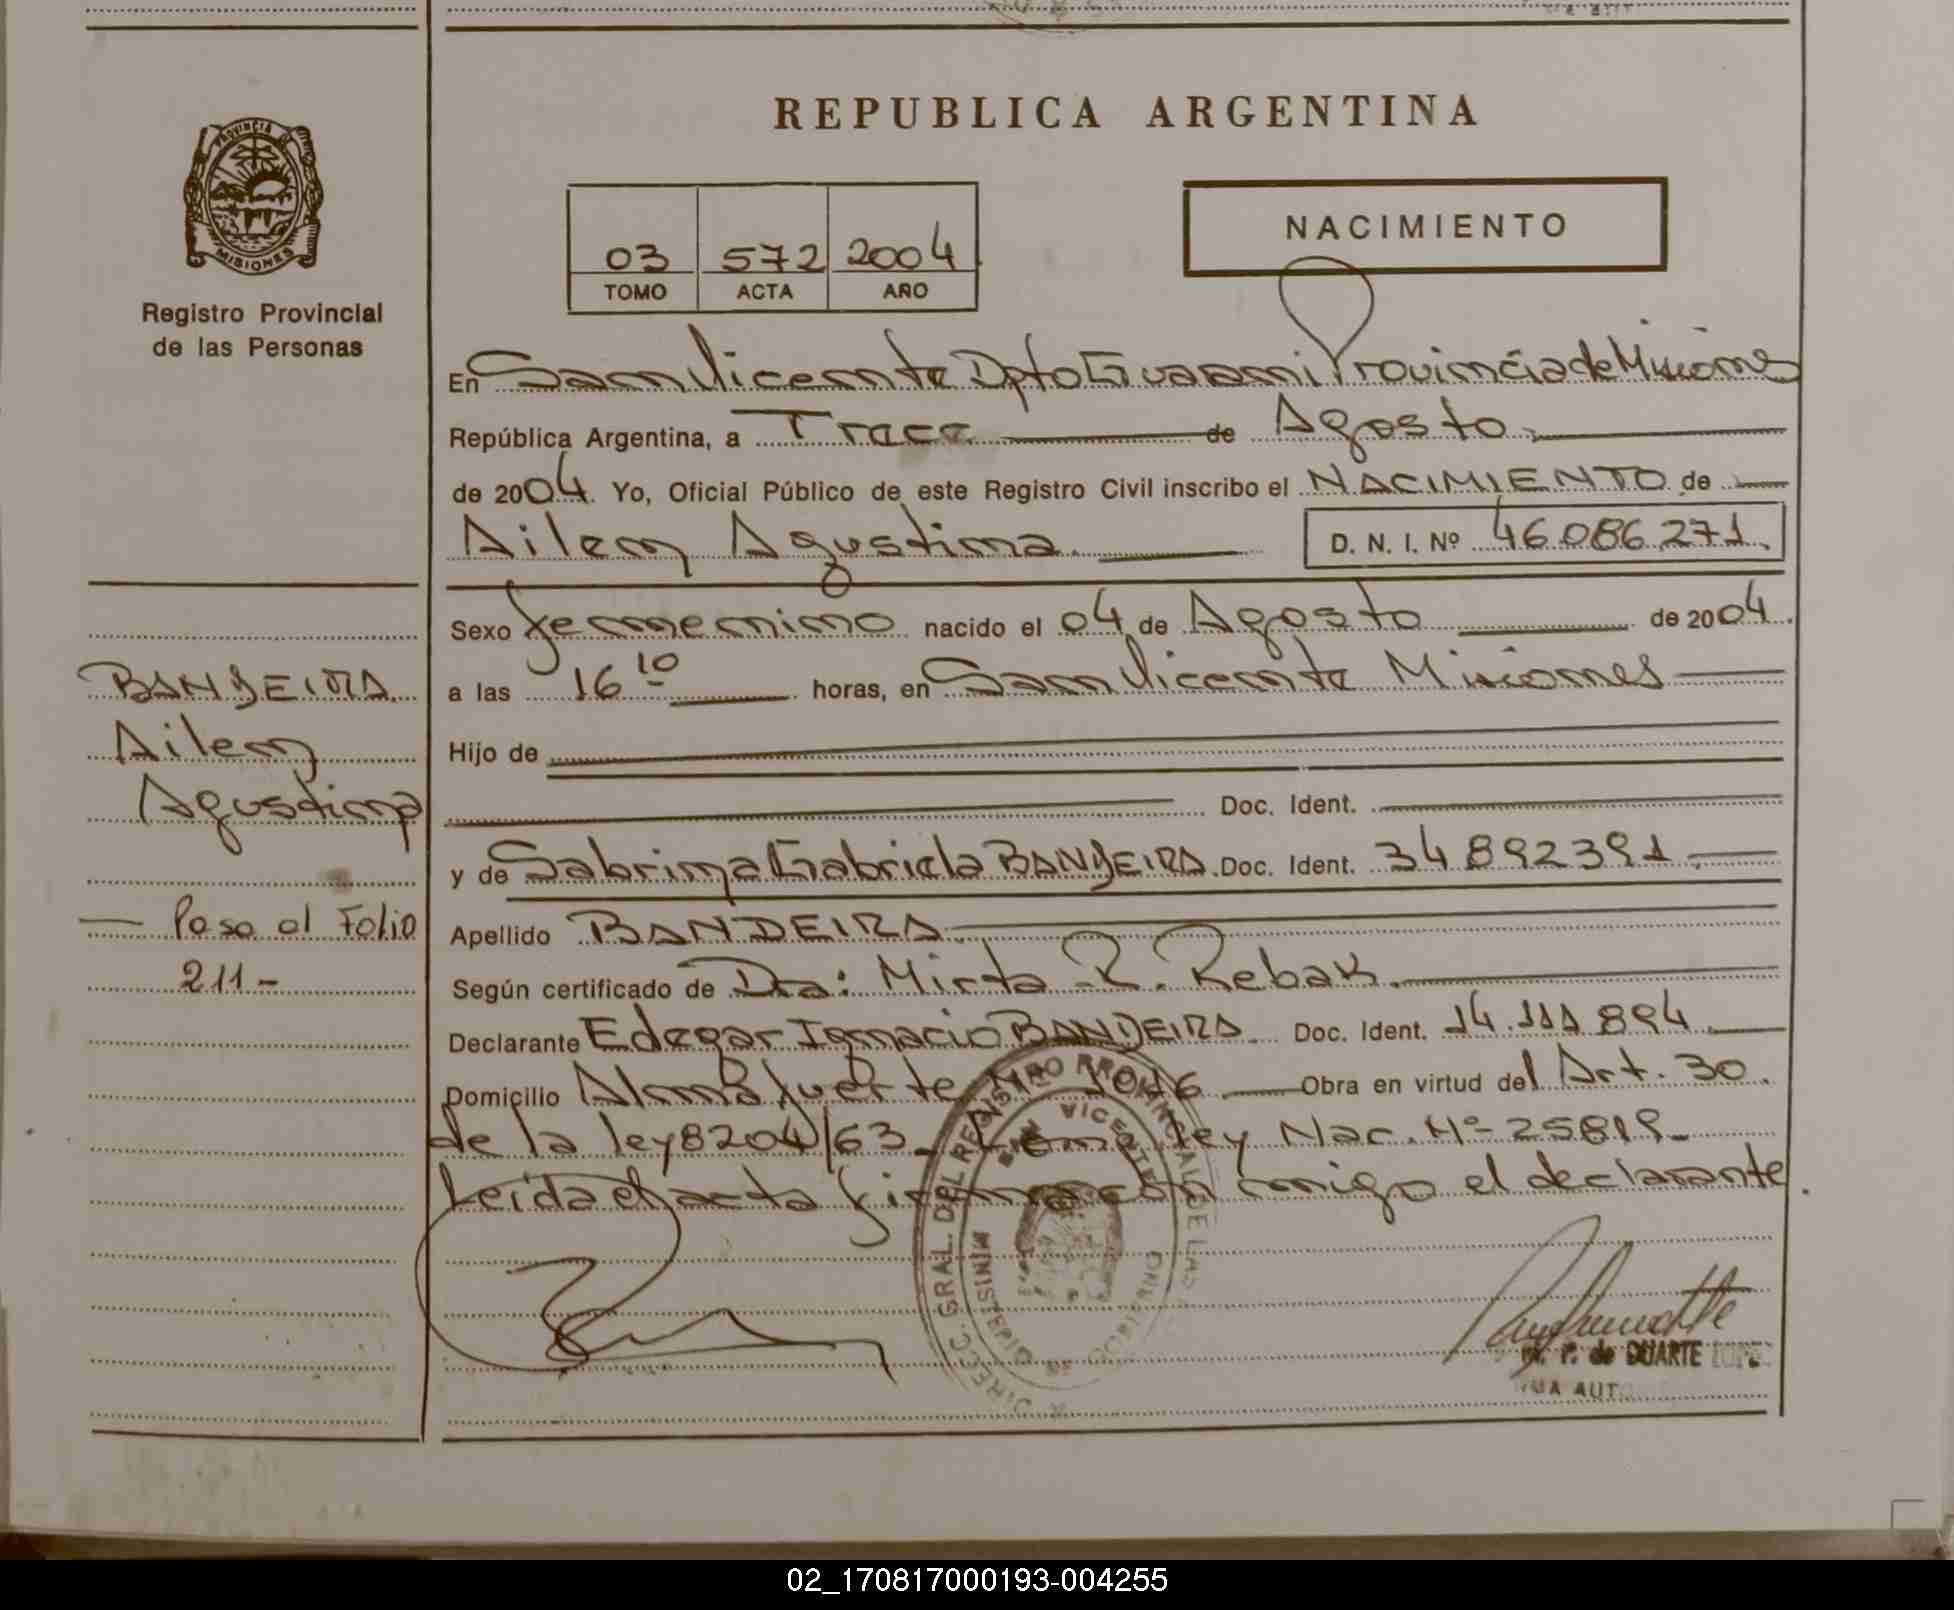 REPUBLICA ARGENTINA
PROVINCIA
MISIONES
Registro Provincial
de las Personas
03 572 2004
TOMO ACTA AÑO
NACIMIENTO
En San Vicente Dpto Guarani Provincia de Misiones
República Argentina, a Trece de Agosto
de 2004. Yo, Oficial Público de este Registro Civil inscribo el NACIMIENTO de
Ailen Agustina D. N. I. Nº 46.086.271.
Sexo femenino nacido el 04 de Agosto de 2004.
a las 16 10 horas, en San Vicente Misiones
Hijo de
Doc. Ident.
y de Sabrina Gabriela BANDEIRA. Doc. Ident. 34 892391
Apellido BANDEIRA
Según certificado de Dra: Mirta R. Rebak
Declarante Edegar Ignacio BANDEIRA Doc. Ident. 14.111.894
Domicilio Almafuerte Nº 1016 Obra en virtud del Art. 30
de la ley 8204/63 ley Nac. Nº 25819
Leida el acta firma conmigo el declarante.
BANDEIRA
Ailen
Agustina
Paso al Folio
211-
DIRECC. GRAL. DEL REGISTRO PROVINCIAL DE LAS
SAN VICENTE
MINISTERIO DE GOBIERNO
de DUARTE
02_170817000193-004255